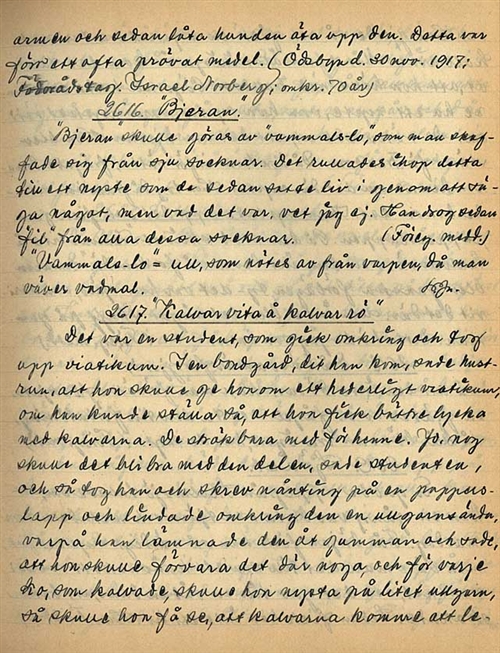 armen och sedan låta hunden äta upp den. Detta var
förr ett ofta prövat medel. (Ödsbyn d. 30 nov. 1917;
Israel Norberg; omkr. 70 år)
2616. "Bjeran".
"Bjeran" skulle göras av "vammals-lo", som man skaf-
fade sig från sju socknar. Det rullades ihop detta
till ett nyste som de sedan satte liv i genom att sä-
ga något, men vad det var, vet jag ej. Han drog sedan
"fil" från alla dessa socknar. (Föreg. medd.)
"Vammals-lo" = ull, som nötes av från varpen, då man
väver vadmal.
2617. "Kalvar vita å kalvar rö"
Det var en student, som gick omkring och tog
upp viatikum. I en bondgård, dit han kom, sade hust-
run, att hon skulle ge honom ett hederligt viatikum,
om han kunde ställa så, att hon fick bättre lycka
med kalvarna. De sträk bara med för henne. Jo, nog
skulle det bli bra med den delen, sade studenten,
och så tog han och skrev nånting på en pappers-
lapp och lindade omkring den en ullgarnsända,
varpå han lämnade den åt gumman och sade,
att hon skulle förvara det där noga, och för varje
ko, som kalvade, skulle hon nysta på litet ullgarn,
så skulle hon få se, att kalvarna komme att le-